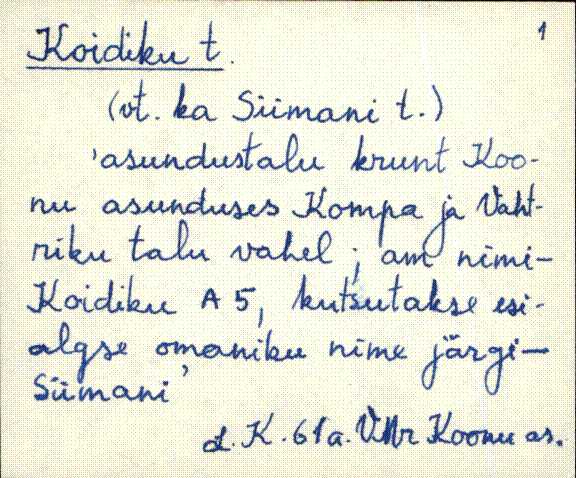 1
Koidiku t.
(vt. ka Siimani t.)
'asundustalu krunt Koo-
nu asunduses Kompa ja Vaht-
riku talu vahel; am nimi-
Koidiku A 5, kutsutakse esi-
algse omaniku nime järgi-
Siimani'
K. 61a. VNr Koonu as.